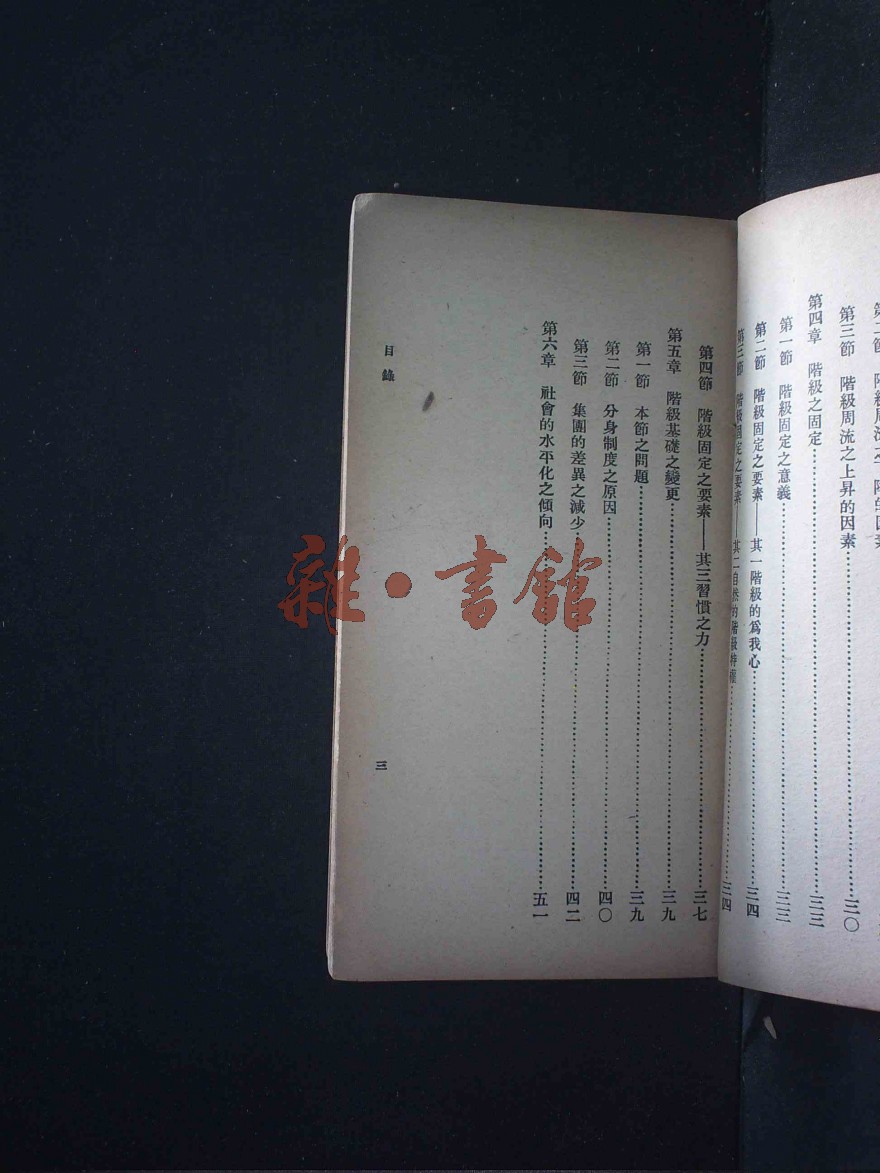 第三節　階級周流之上昇的因素……三〇
第四章　階級之固定……三三
第一節　階級固定之意義……三三
第二節　階級固定之要素——其一階級的爲我心……三四
第三節　階級固定之要素——其二自然的階級特權……三四
第四節　階級固定之要素——其三習慣之力……三七
第五章　階級基礎之變更……三九
第一節　本節之問題……三九
第二節　分身制度之原因……四〇
第三節　集團的差異之減少……四二
第六章　社會的水平化之傾向……五一
目錄
三
雜·書館